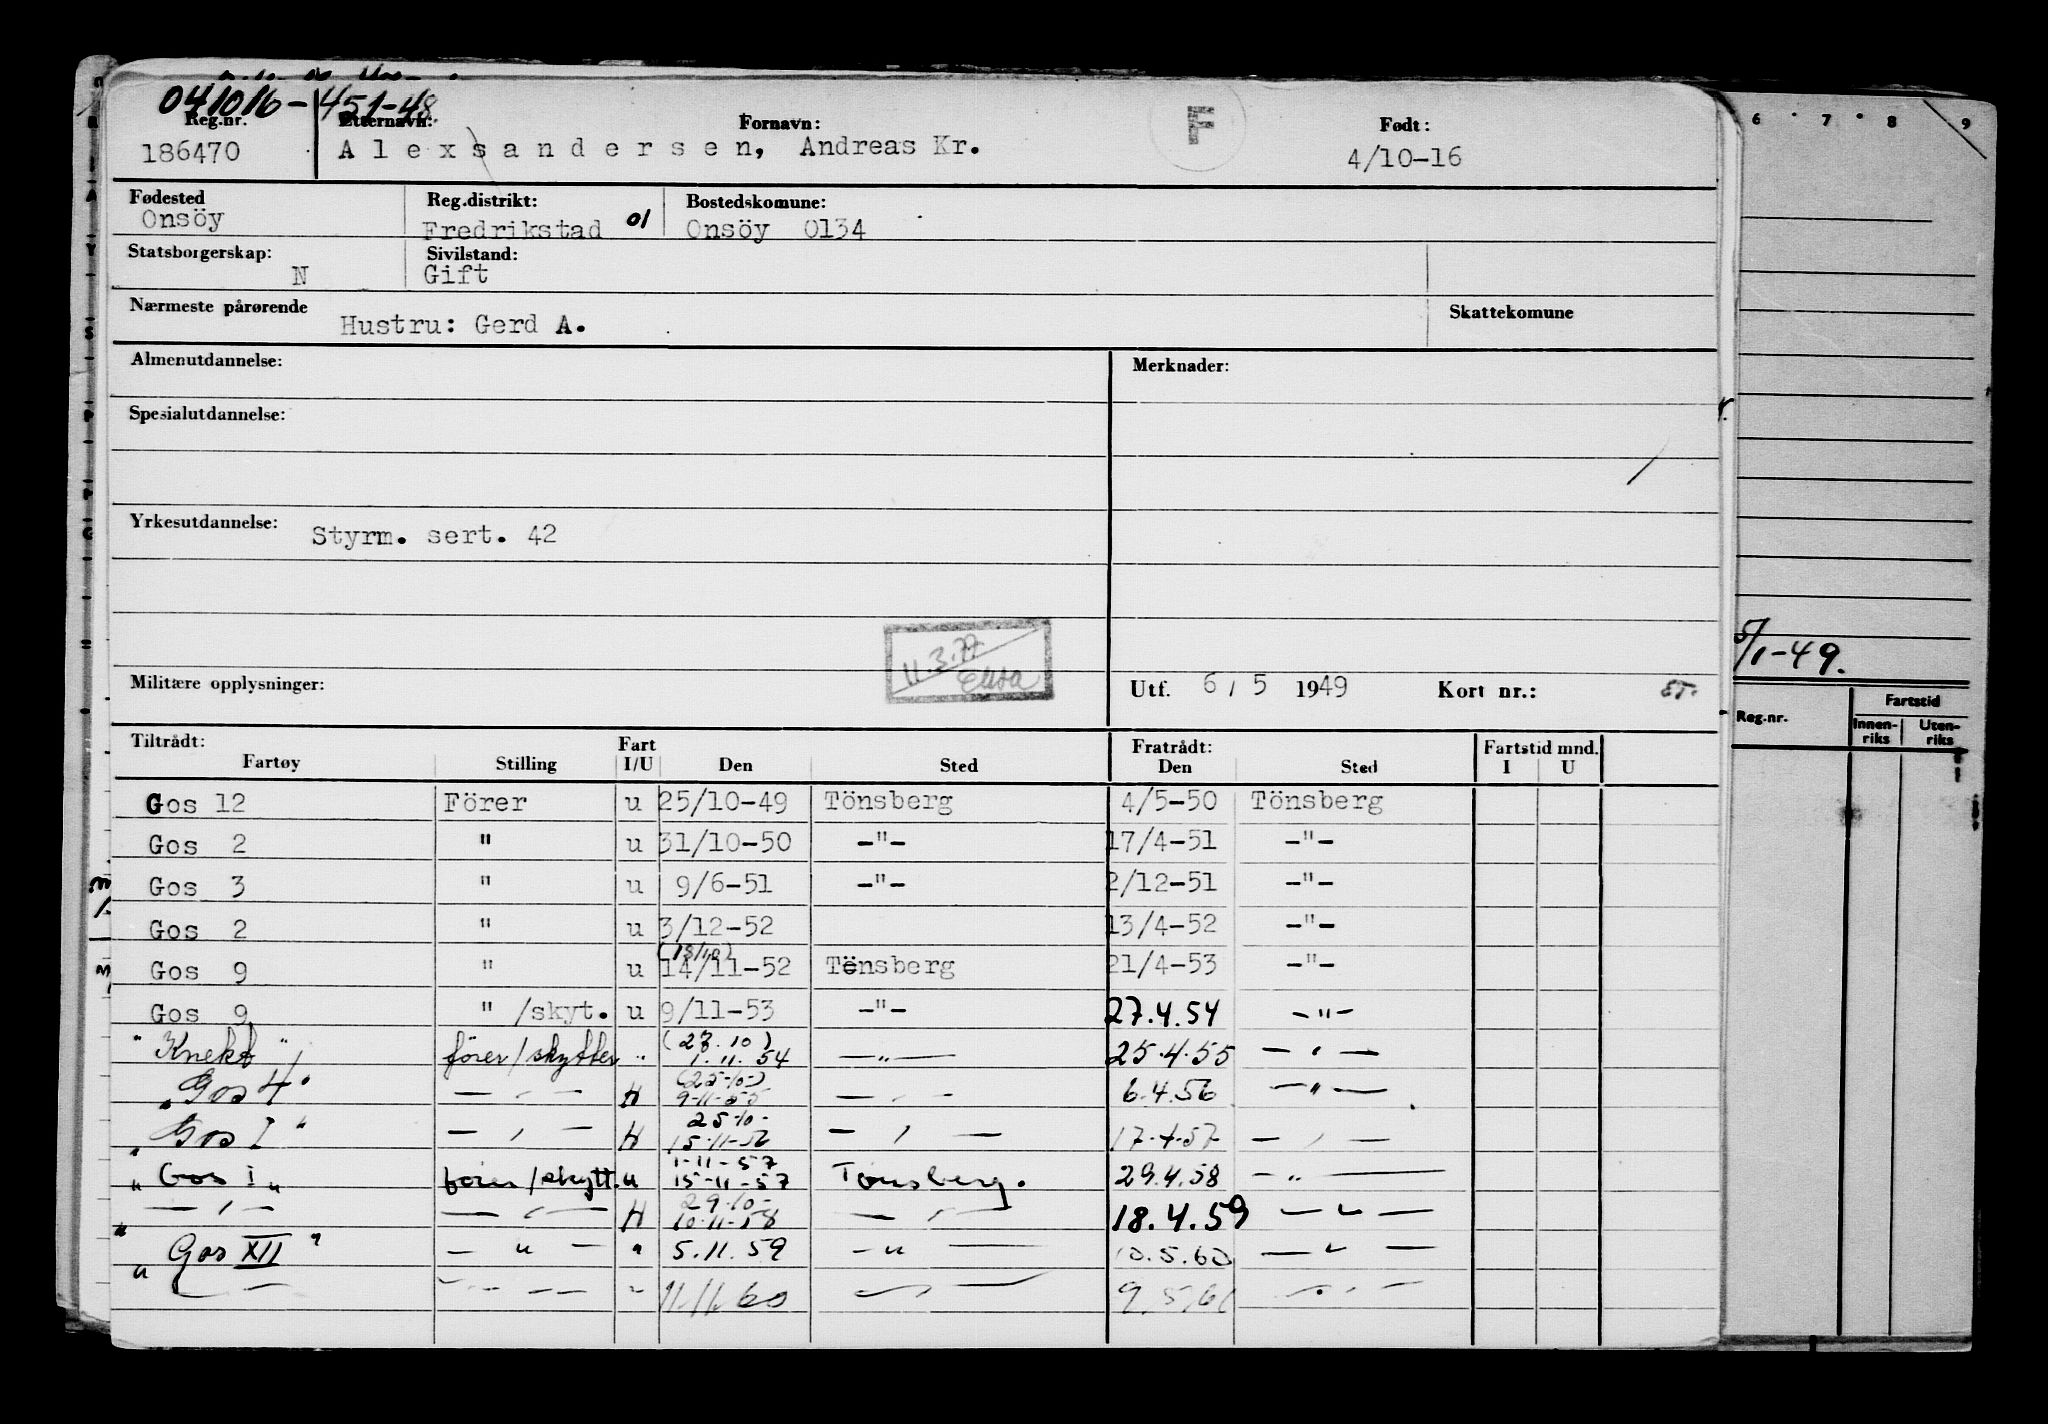 041016-451-48
Reg.nr. Etternavn: Fornavn: F Født:
186470 Alexsandersen, Andreas Kr. 4/10-16
Fødested Reg.distrikt: Bostedskomune:
Onsöy Fredrikstad 01 Onsöy 0134
Statsborgerskap: Sivilstand:
N Gift
Nærmeste pårørende Skattekomune
Hustru: Gerd A.
Almenutdannelse: Merknader:
Spesialutdannelse:
Yrkesutdannelse: Styrm. sert. 42
11.3.77
Elisa
Militære opplysninger: Utf. 6/5 1949 Kort nr.:
Tiltrådt: Fart Fratrådt: Fartstid mnd.
Fartøy Stilling I/U Den Sted Den Sted I U
Gos 12 Förer u 25/10-49 Tönsberg 4/5-50 Tönsberg
Gos 2 " u 31/10-50 -"- 17/4-51 -"-
Gos 3 " u 9/6-51 -"- 2/12-51 -"-
Gos 2 " u 3/12-52 13/4-52 -"-
(18/10)
Gos 9 " u 14/11-52 Tënsberg 21/4-53 -"-
Gos 9 " /skyt. u 9/11-53 -"- 27.4.54 -"-
(23.10)
"Knekt" förer/skytter " 1.11.54 -"- 25.4.55 -"-
(25-10-)
"Gos 4" -"- 9-11-55 -"- 6.4.56 -"-
25-10-
"Gos I" -"- 15-11-56 -"- 17-4-57 -"-
1-11-57
"Gos I" förer/skytt. u 15-11-57 Tønsberg. 29.4.58 -"-
29-10-
-"- -"- 10-11-58 -"- 18.4.59 -"-
"Gos XII" -"- " 5.11.59 -"- 10.5.60 -"-
-"- -"- " 11/11.60 -"- 9/5/61 -"-
6 7 8 9
5/1-49.
Reg.nr. Fartstid
Innen-riks Uten-riks